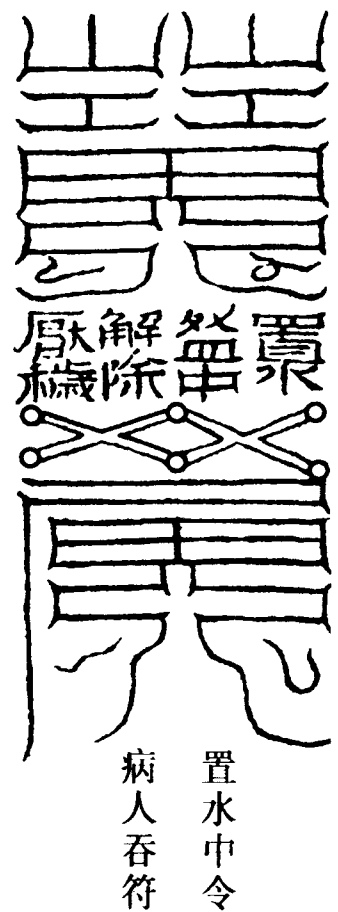 置水
盆中
解除
厭穢
置水中令
病人吞符